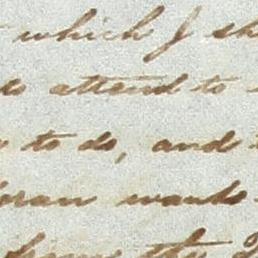 which I sh
to attend to
to do, and
oran wants
the